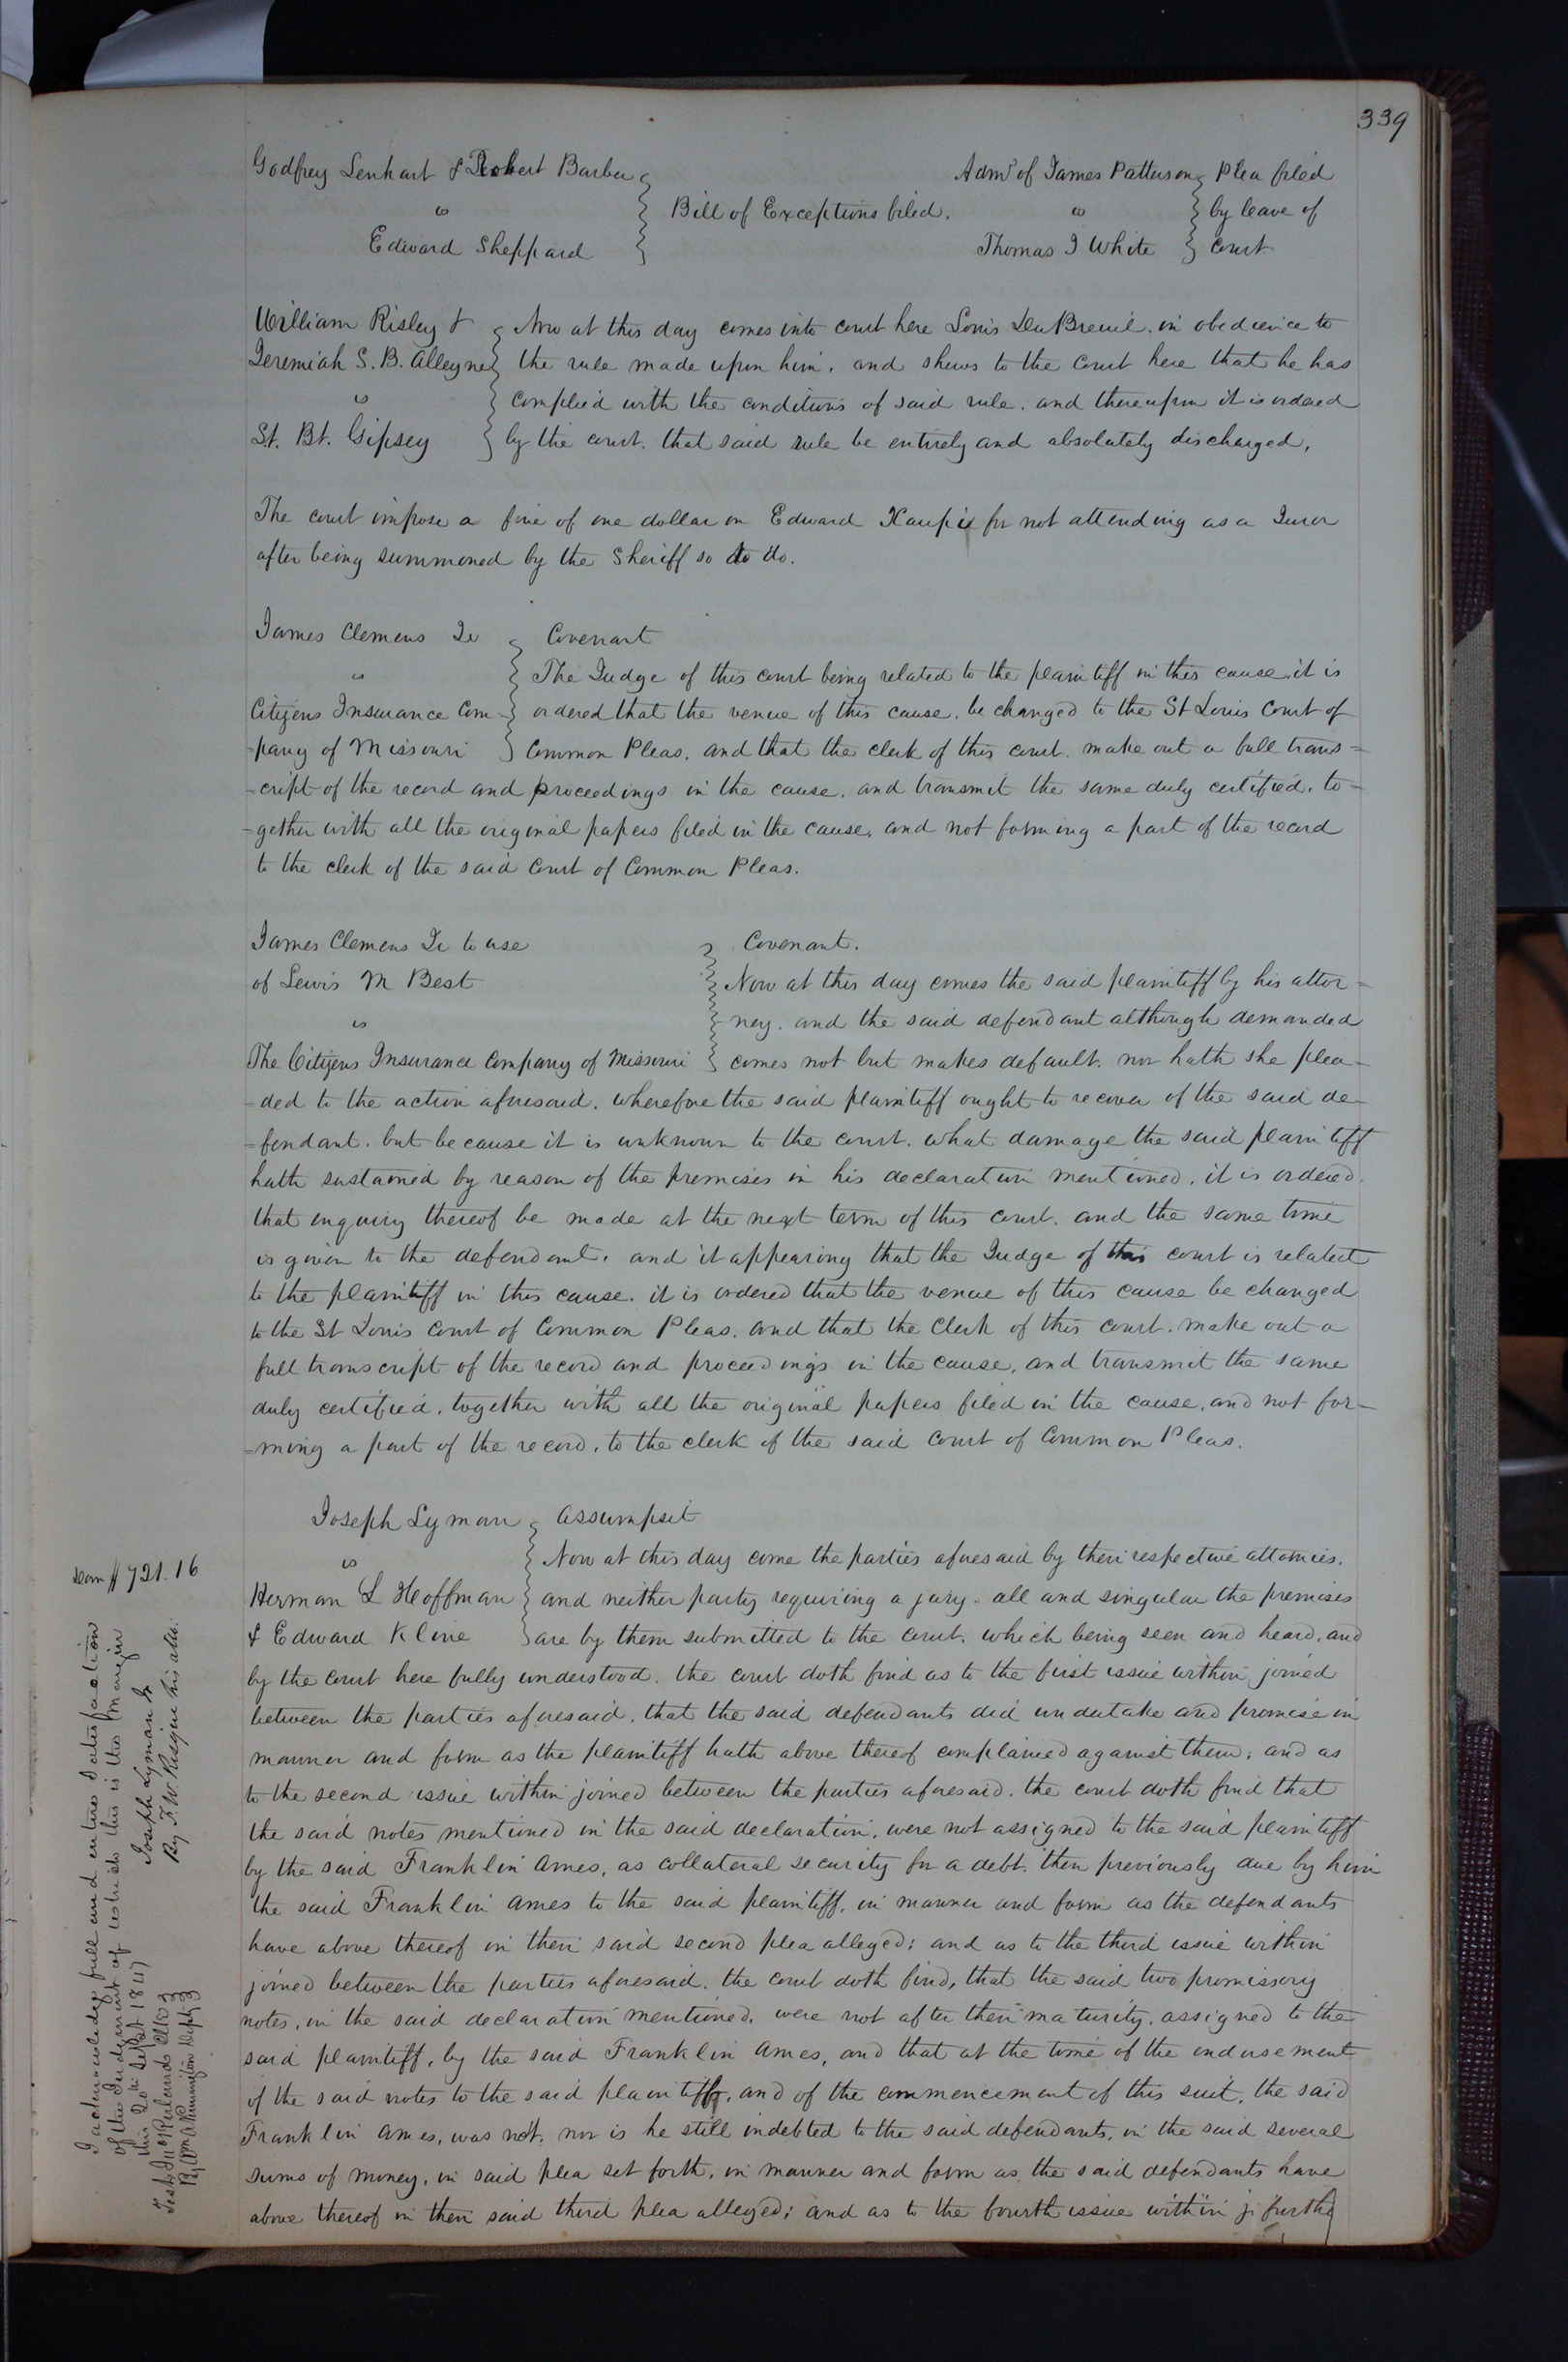 339
Godfrey Lenhart & Robert Barber
vs
Edward Sheppard
Bill of Exceptions filed.
Admr of James Patterson
vs
Thomas J White
Plea filed
by leave of
Court
William Risley &
Jeremiah S. B. Alleyne
vs
St. Bt. Gipsey
Now at this day comes into court here Louis DuBreuil. in obedience to
the rule made upon him, and shews to the Court here that he has
complied with the conditions of said rule. and thereupon it is ordered
by the court. that said rule be entirely and absolutely discharged,
The court impose a fine of one dollar on Edward for not attending as a Juror
after being summoned by the Sheriff so to do.
James Clemens Jr
vs
Citizens Insurance Com-
-pany of Missouri
Covenant
The Judge of this court being related to the plaintiff in this cause, it is
ordered that the venue of this cause. be changed to the St Louis Court of
Common Pleas. and that the clerk of this court. make out a full trans=
-cript of the record and proceedings in the cause. and transmit the same duly certified. to-
-gether with all the original papers filed in the cause, and not forming a part of the record
to the clerk of the said Court of Common Pleas.
James Clemens Jr to use
of Lewis M Best
vs
The Citizens Insurance Company of Missouri
Covenant.
Now at this day comes the said plaintiff by his attor=
-ney. and the said defendant although demanded
comes not but makes default. nor hath she plea-
-ded to the action aforesaid. wherefore the said plaintiff ought to recover of the said de-
=fendant. but because it is unknown to the court. what damage the said plaintiff
hath sustained by reason of the premises in his declaration mentioned, it is ordered.
that enquiry thereof be made at the next term of this court. and the same time
is given to the defendant. and it appearing that the Judge of this court is related
to the plaintiff in this cause. it is ordered that the venue of this cause be changed
to the St Louis Court of Common Pleas. and that the Clerk of this court. make out a
full transcript of the record and proceedings in the cause, and transmit the same
duly certified. together with all the original papers filed in the cause, and not for-
=ming a part of the record, to the clerk of the said Court of Common Pleas.
Joseph Lyman
vs
Herman L Hoffman
& Edward Kline
Assumpsit
Now at this day come the parties aforesaid by their respective attornies.
and neither party requiring a jury. all and singular the premises
are by them submitted to the court. which being seen and heard, and
by the court here fully understood. the court doth find as to the first issue within joined
between the parties aforesaid, that the said defendants did undertake and promise in
manner and form as the plaintiff hath above thereof complained against them; and as
to the second issue within joined between the parties aforesaid. the court doth find that
the said notes mentioned in the said declaration, were not assigned to the said plaintiff
by the said Franklin Ames, as collateral security for a debt. then previously due by him
the said Franklin Ames to the said plaintiff. in manner and form as the defendants
have above thereof in their said second plea alleged; and as to the third issue within
joined between the parties aforesaid. the court doth find, that the said two promissory
notes, in the said declaration mentioned. were not after their maturity. assigned to the
said plaintiff, by the said Franklin Ames, and that at the time of the endorsement
of the said notes to the said plaintiff, and of the commencement of this suit, the said
Franklin Ames, was not, nor is he still indebted to the said defendants, in the said several
sums of money, in said plea set forth, in manner and form as the said defendants have
above thereof in their said third plea alleged; and as to the fourth issue within
Dam $721.16
I acknowledge full and entire Satisfaction
of the Judgment of which this is the margin
this Sept 1847
Joseph Lyman Jr
By F. W. Risque his atto.
Test.